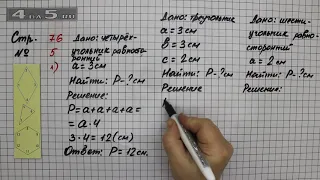 4 на 5.ru
Стр. 76
№ 5
1)
Дано: четырёх-
угольник равносто-
ронний
a = 3 см
Найти: P-? см
Решение:
P = a + a + a + a =
= a · 4
3 · 4 = 12 (см)
Ответ: P = 12 см.
Дано: треугольник
a = 3 см
b = 3 см
c = 2 см
Найти: P-? см
Решение
Дано: шести-
угольник равно-
сторонний
a = 2 см
Найти: P-? см
Решение: